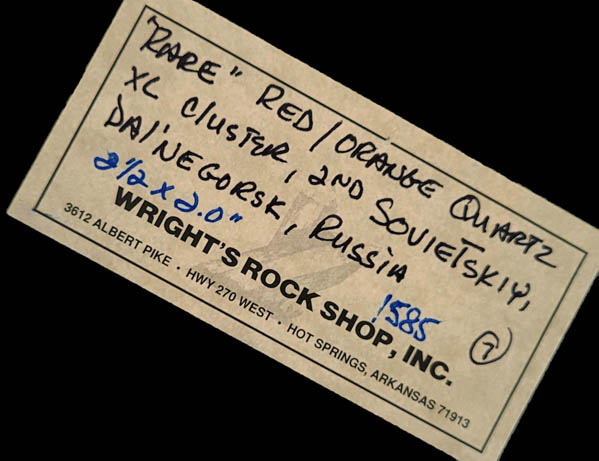 "RARE" RED/ORANGE QUARTZ
XL CLUSTER, 2ND SOVIETSKIY,
DAL'NEGORSK, RUSSIA
2 1/2 x 2.0"
1585
7
WRIGHT'S ROCK SHOP, INC.
3612 ALBERT PIKE · HWY 270 WEST · HOT SPRINGS, ARKANSAS 71913